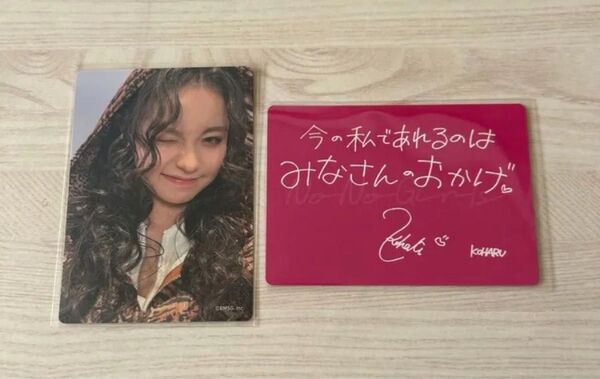 ©BMSG, Inc.
今の私であれるのは
みなさんのおかげ♡
No No Girls
Koharu ♡
KOHARU